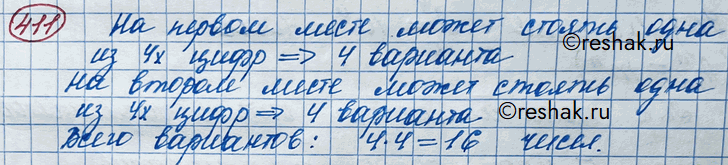 411 На первом месте может стоять одна
из 4х цифр => 4 варианта
На втором месте может стоять одна
из 4х цифр => 4 варианта
Всего вариантов: 4·4=16 чисел.
©reshak.ru
©reshak.ru